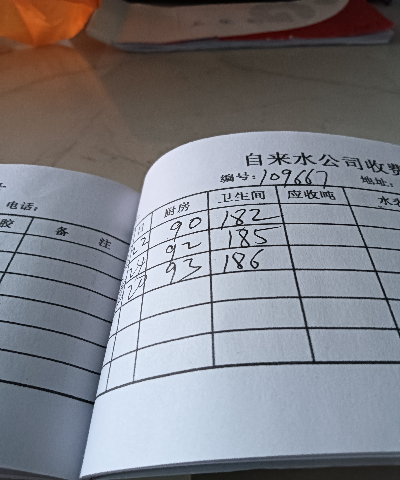 电话:
备 注
自来水公司收费
编号:109667 地址:
厨房 卫生间 应收吨
90 182
92 185
93 186